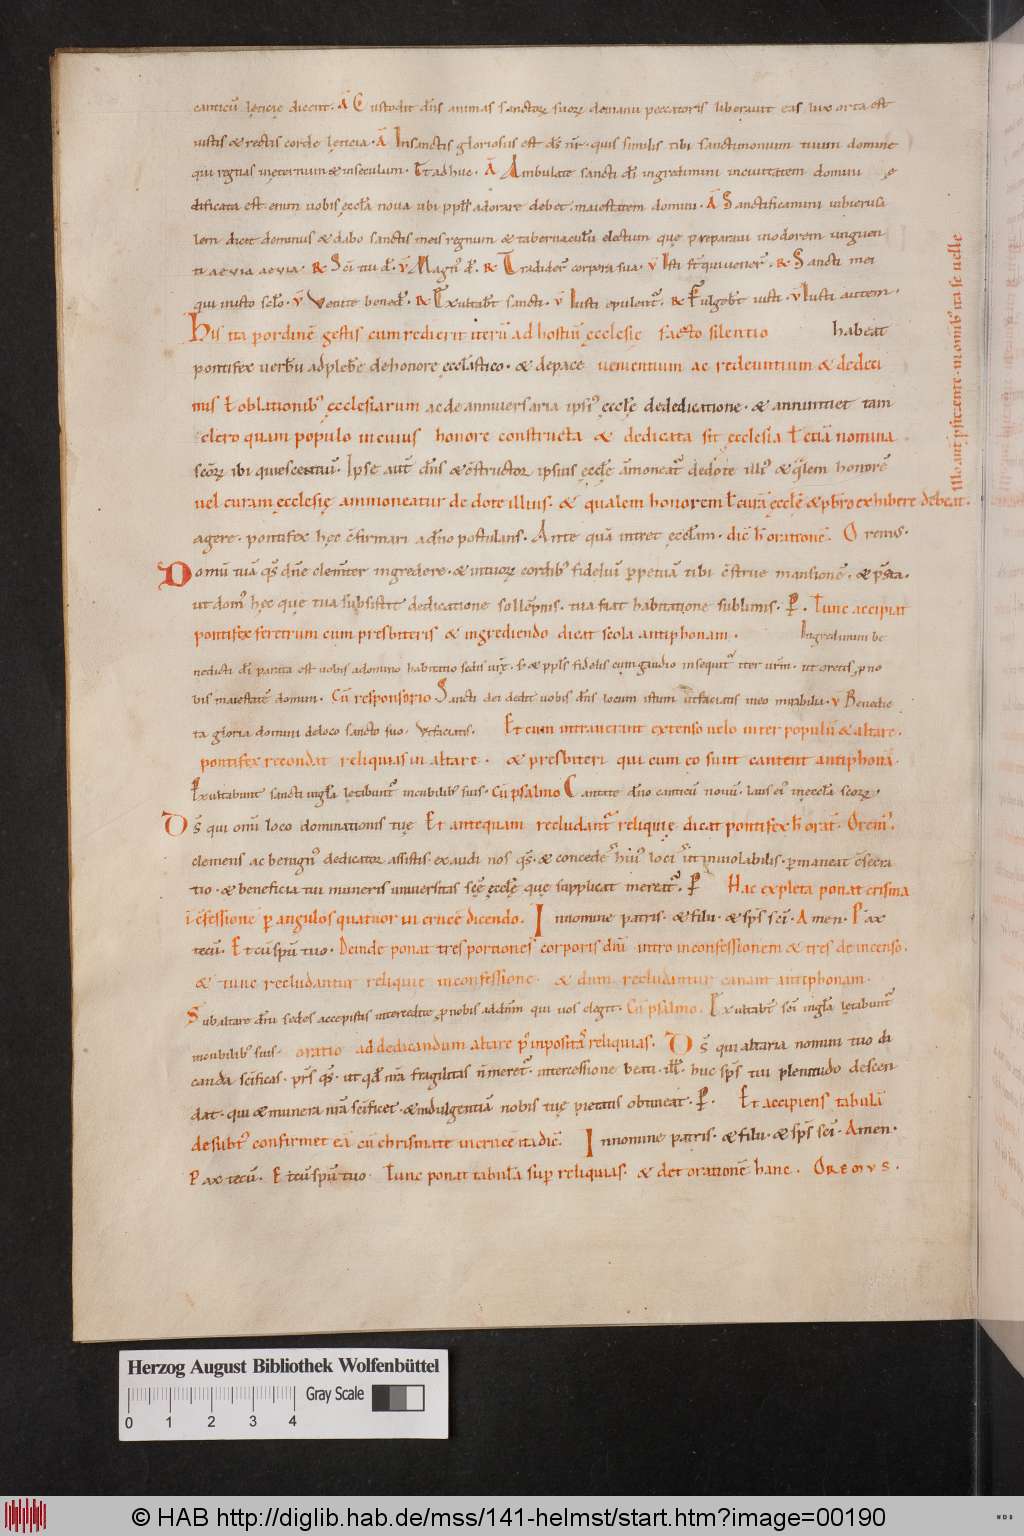 canticū lęticię dicent. A Custodit dn̄s animas sanctorꝝ suorꝝ de manu peccatoris liberavit eas lux orta est
iustis & rectis corde lęticia. A In sanctis gloriosus est ds̄ nr̄. quis similis tibi sanctimonium tuum domine
qui regnas inęternum & inseculum. Et adhuc. A Ambulate sancti dī ingredimini incivitatem domini ę
dificata est enim vobis ęccła nova ubi ppl̄s adorare debet maiestatem domini. A Sanctificamini
lem dicit dominus & dabo sanctis meis regnum & tabernaculū electum que preparavi inodorem unguen
ti aevia aevia. R Sc̄i tui d. V Magn d. R Tradider corpora sua. V Isti st̄ qui vener. R Sancti mei
qui in isto sclo. V Venite bened. R Exultabt sancti. V Iusti epulent. R Fulgebt iusti. V Iusti autem.
His ita pordinē gestis cum redierit iterū ad hostiū ęcclesię facto silentio habeat
pontifex verbū ad plebē de honore ęcclastico. & de pace venientium ac redeuntium & de deci
mis ł oblationib; ęcclesiarum ac de anniversaria ipsi ęccłę dedicatione. & annuntiet tam
clero quam populo in cuius honore constructa & dedicata sit ęcclesia ł etiā nomina
scōꝝ ibi quiescentiū. Ipse aut̄ dn̄s & cstructor ipsius ęccłę āmoneat de dote illi & qlem honorē
vel curam ęcclesię ammoneatur de dote illius. & qualem honorem ł curā ęccłę & pbro exhibere debeat.
agere. pontifex hęc cfirmari adn̄o postulans. Ante quā intret ęccłam. dic h orationē. Oremus.
Domū tuā qs̄ dn̄e clemter ingredere. & in tuorꝝ cordib; fideliū ppetuā tibi cstrue mansionē. & psta.
ut dom hęc que tua subsistit dedicatione sollepnis. tua fiat habitatione sublimis. P. Tunc accipiat
pontifex feretrum cum presbiteris & ingrediendo dicat scola antiphonam. Ingredimini be
nedicti dī parata est vobis adomino habitatio sedis vrę. s; & ppl̄s fidelis cum gaudio insequit iter vrm. ut oretis p no
bis maiestatē domini. Cū responsorio Sancti dei dedit vobis dn̄s locum istum ut faciatis meo mirabilia. V Benedic
ta gloria domini de loco sancto suo. Ut faciatis. Et cum intraverint extenso velo inter populū & altare.
pontifex recondat reliquias in altare. & presbiteri qui cum eo sunt cantent antiphonā.
Exultabunt sancti ingła lętabunt in cubilib; suis. Cū psalmo Cantate dn̄o canticū novū. laus ei inęccła scoꝝ.
Ds̄ qui omi loco dominationis tuę Et antequam recludant reliquię dicat pontifex h orat. Orem.
clemens ac benign dedicator assistis. exaudi nos qs̄. & concede hui loci ut inviolabilis. pmaneat csecra
tio. & beneficia tui muneris universitas scę ęccłę que supplicat mereat. P Hac expleta ponat crisma
i cfessione p angulos quatuor in crucē dicendo. In nomine patris. & filii. & sps̄ sci. Amen. Pax
tecū. Et cū spū tuo. Deinde ponat tres portiones corporis dn̄i intro inconfessionem & tres de incenso.
& tunc recludantur reliquię inconfessione. & dum recludantur canant antiphonam.
Sub altare dn̄i sedes accepistis intercedite p nobis addnm qui vos elegit. Cū psalmo. Exultabt sci ingła lętabunt
incubilib; suis. oratio ad dedicandum altare p inposita reliquias. Ds̄ qui altaria nomini tuo di
canda scificas. prs qs̄. ut qd nra fragilitas n meret. intercessione beati. ill. huc sps̄ tui plenitudo descen
dat. qui & munera nrā scificet. & indulgentiā nobis tuę pietatis obtineat. P. Et accipiens tabulā
desubt confirmet eā cū chrismate in crucē ita dic. In nomine patris. & filii. & sps̄ sci. Amen.
Pax tecū. Et cū spū tuo. Tunc ponat tabulā sup reliquias. & det orationē hanc. Oremus.
Herzog August Bibliothek Wolfenbüttel
Gray Scale
0 1 2 3 4
© HAB http://diglib.hab.de/mss/141-helmst/start.htm?image=00190